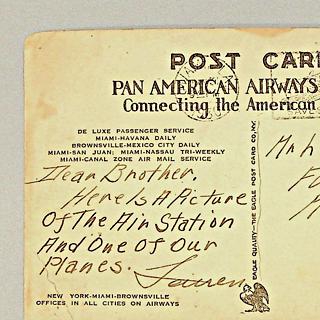 POST CAR
PAN AMERICAN AIRWAYS
Connecting the American
DE LUXE PASSENGER SERVICE
MIAMI-HAVANA DAILY
BROWNSVILLE-MEXICO CITY DAILY
MIAMI-SAN JUAN; MIAMI-NASSAU TRI-WEEKLY
MIAMI-CANAL ZONE AIR MAIL SERVICE
Dear Brother.
Here Is A Picture
Of The Air Station
And One Of Our
Planes.
NEW YORK-MIAMI-BROWNSVILLE
OFFICES IN ALL CITIES ON AIRWAYS
EAGLE QUALITY-THE EAGLE POST CARD CO. N.Y.